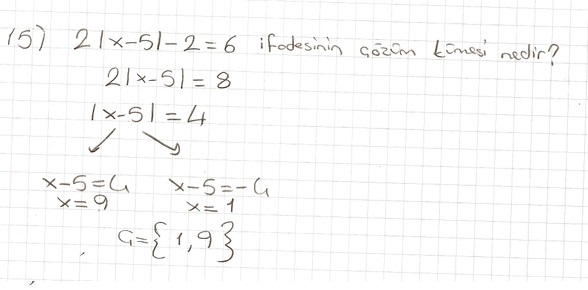 15) 2|x-5|-2=6 ifadesinin çözüm kümesi nedir?
2|x-5|=8
|x-5|=4
x-5=4 x-5=-4
x=9 x=1
Ç={1,9}